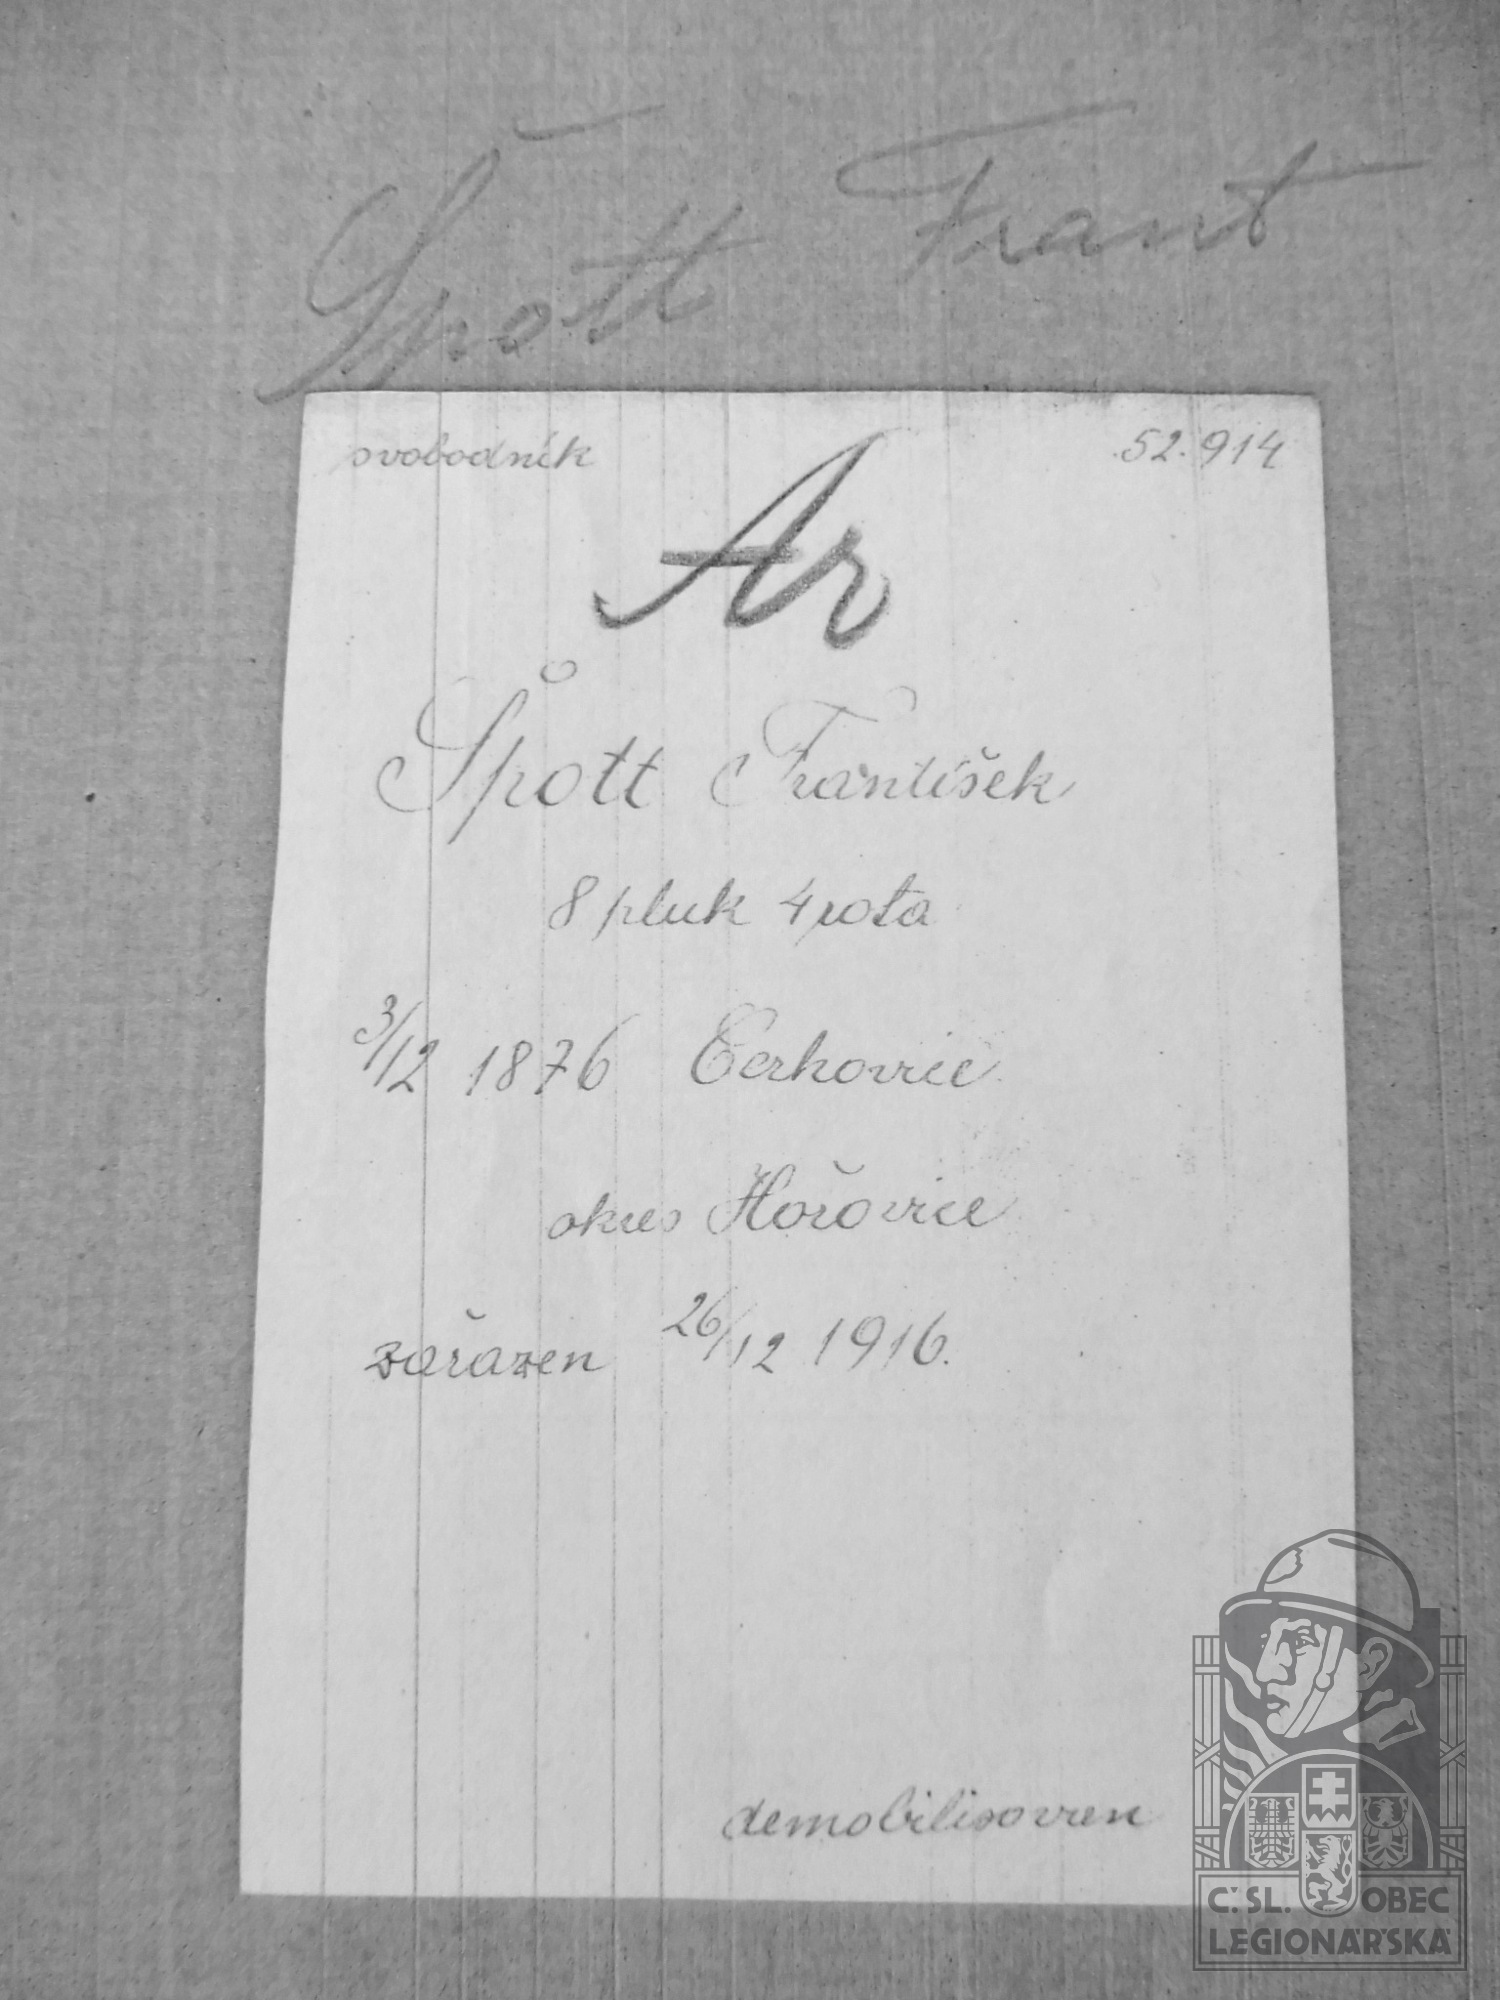 Špott Frant
svobodník 52.914
Ar
Špott František
8 pluk 4 rota
3/12 1876 Cerhovice
okres Hořovice
zařazen 26/12 1916.
demobilisován
Č.SL. OBEC
LEGIONÁŘSKÁ